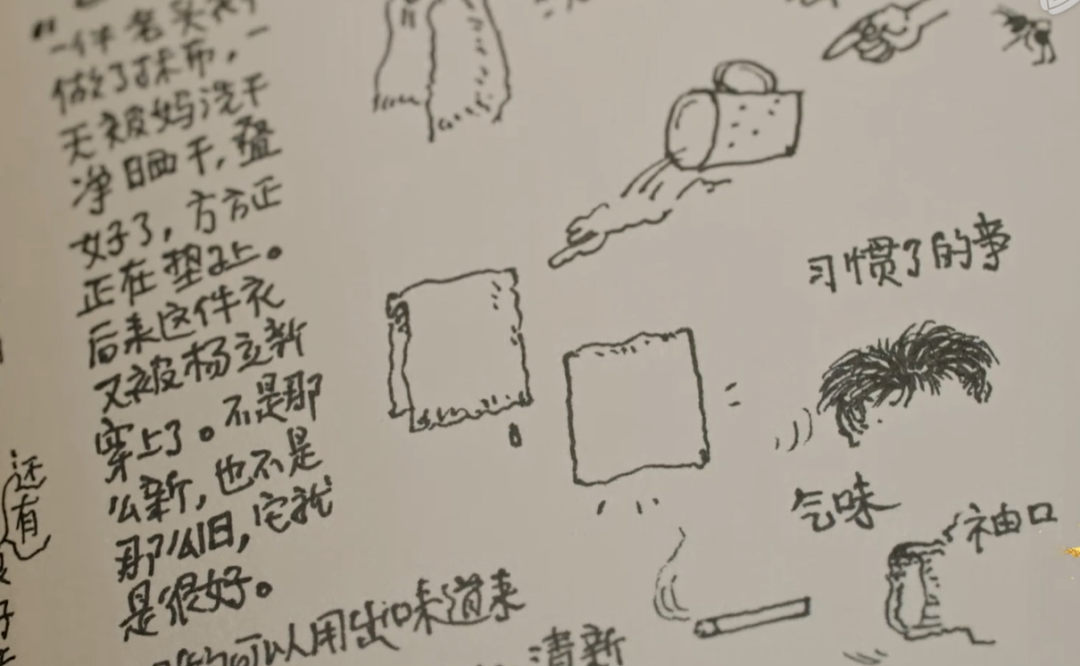 "一件老头衫
做了抹布，一
天被妈洗干
净晒干，叠
好了，方方正
正在垫子上。
后来这件衣
又被杨立新
穿上了。不是那
么新，也不是
那么旧，它就
是很好。
可以用出味道来
清新
习惯了的事
气味
袖口
还有